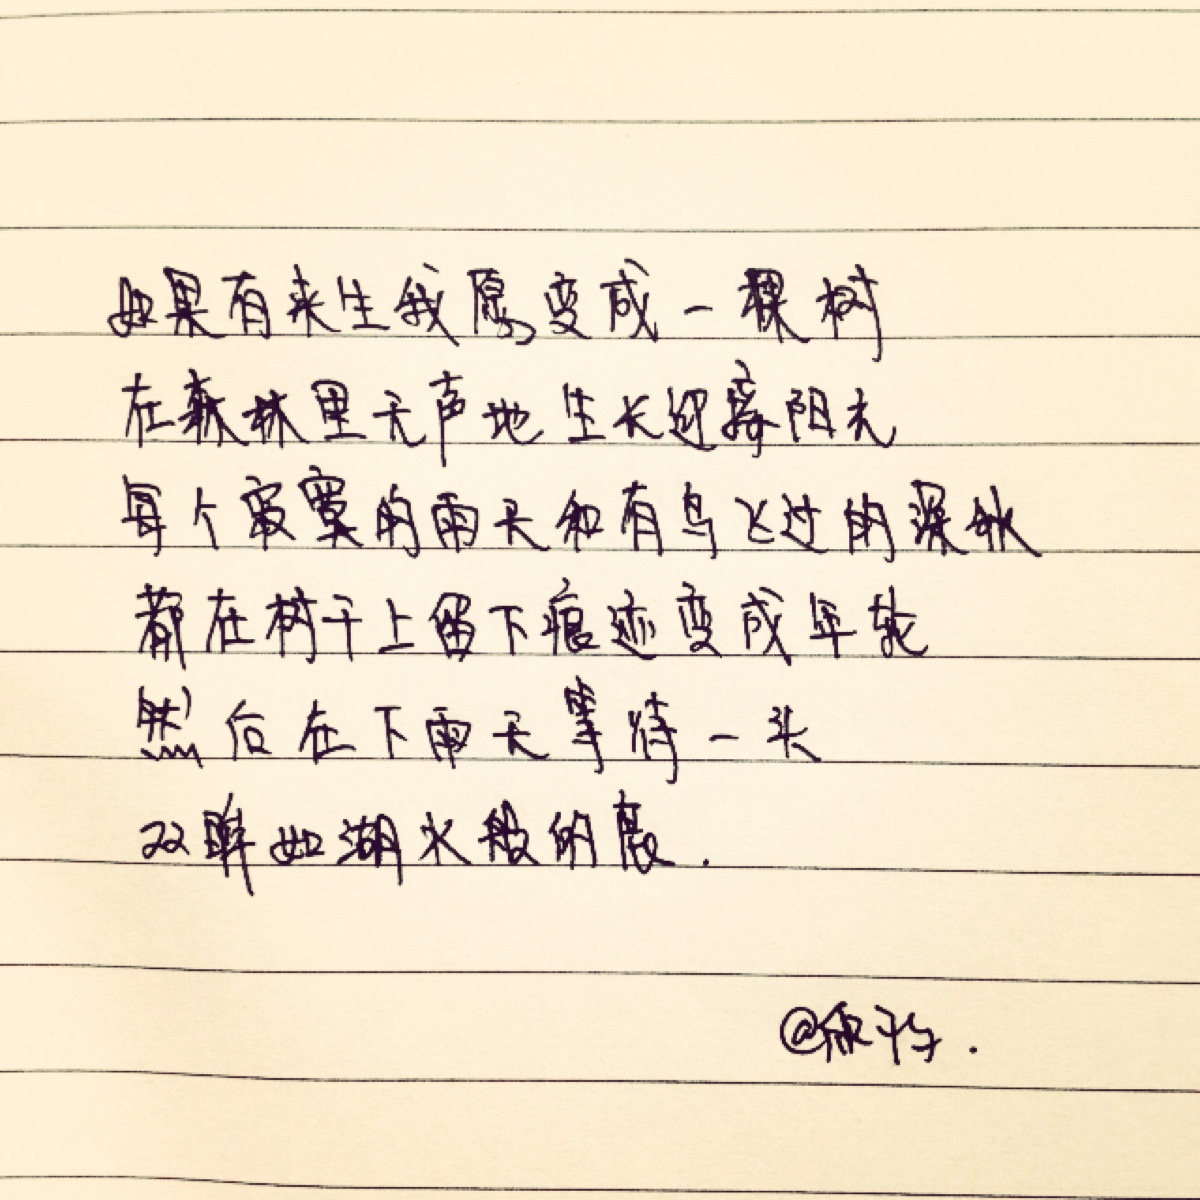 如果有来生我愿变成一棵树
在森林里无声地生长迎着阳光
每个寂寞的雨天和有鸟飞过的深秋
都在树干上留下痕迹变成年轮
然后在下雨天等待一头
双眸如湖水般的鹿.